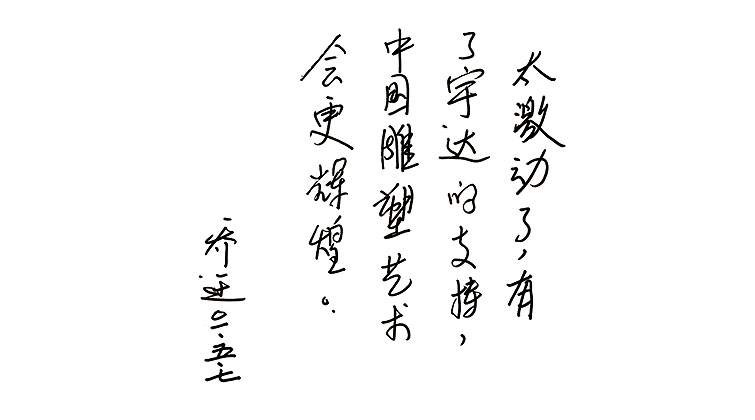 太激动了，有
了宇达的支持，
中国雕塑艺术
会更辉煌。
乔迁〇一.五.七